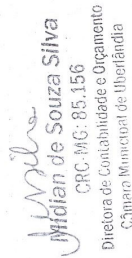 Midian de Souza Silva
CRC-MG: 85.156
Diretora de Contabilidade e Orçamento
Câmara Municipal de Uberlândia